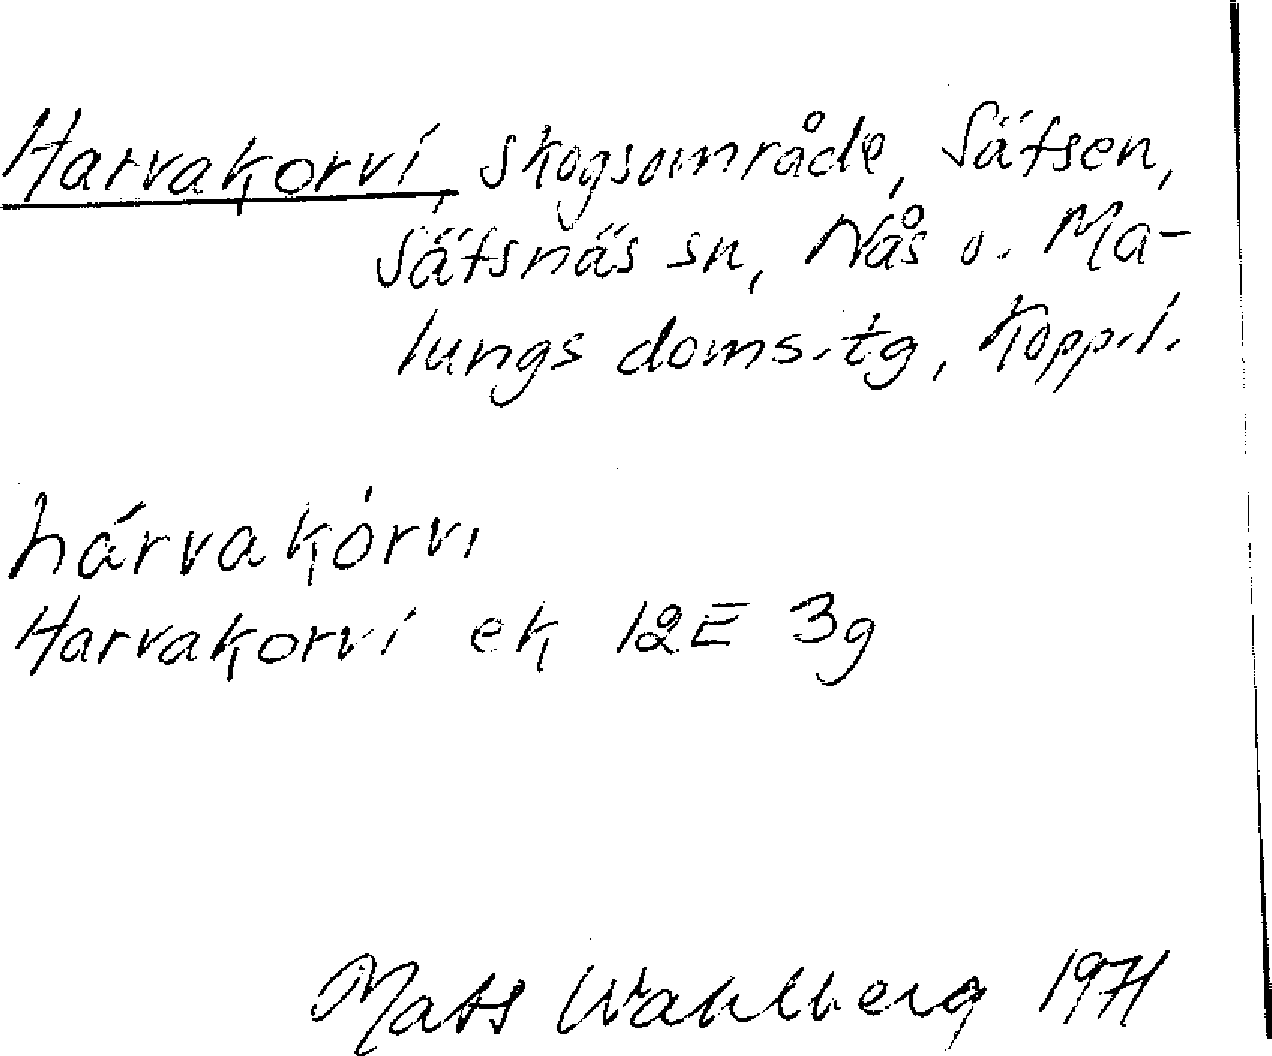 Harvakorvi, skogsområde, Sätsen,
Säfsnäs sn, Nås o. Ma-
lungs doms.tg, Kopp.l.
hárvakòrvi
Harvakorvi ek 12E 3g
Mats Wahlberg 1971